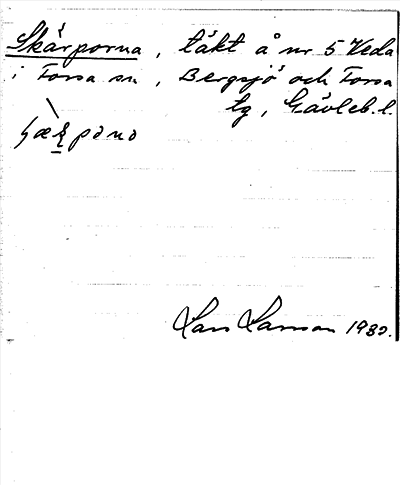 Skärporna, täkt å nr 5 Veda
i Forsa sn, Bergsjö och Forsa
tg, Gävleb. l.
Lars Larsson 1932.